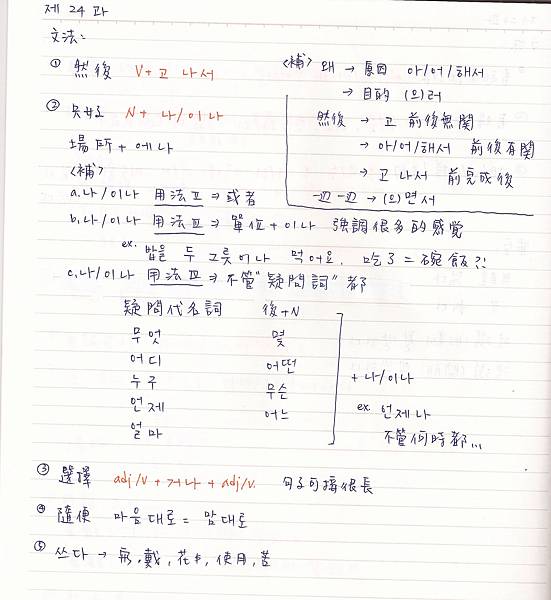 제 24 과
文法:
① 然後 V+고 나서
<補> 왜 → 原因 아/어/해서
→ 目的 (으)러
然後 → 고 前後無關
→ 아/어/해서 前後有關
→ 고 나서 前完成後
一边一边 → (으)면서
② N + 나/이나
場所 + 에나
<補>
a.나/이나 用法Ⅱ ⇒ 或者
b.나/이나 用法Ⅱ ⇒ 單位+이나 強調很多的感覺
ex. 밥을 두 그릇이나 먹어요. 吃了二碗飯?!
c.나/이나 用法Ⅲ ⇒ 不管"疑問詞"都
疑問代名詞 後+N
무엇 몇
어디 어떤
누구 무슨
언제 어느
얼마
+ 나/이나
ex. 언제나
不管何時都...
③ 選擇 adj/v + 거나 + adj/v. 句子可接很長
④ 隨便 마음대로 = 맘대로
⑤ 쓰다 → 寫,戴,花,使用,苦